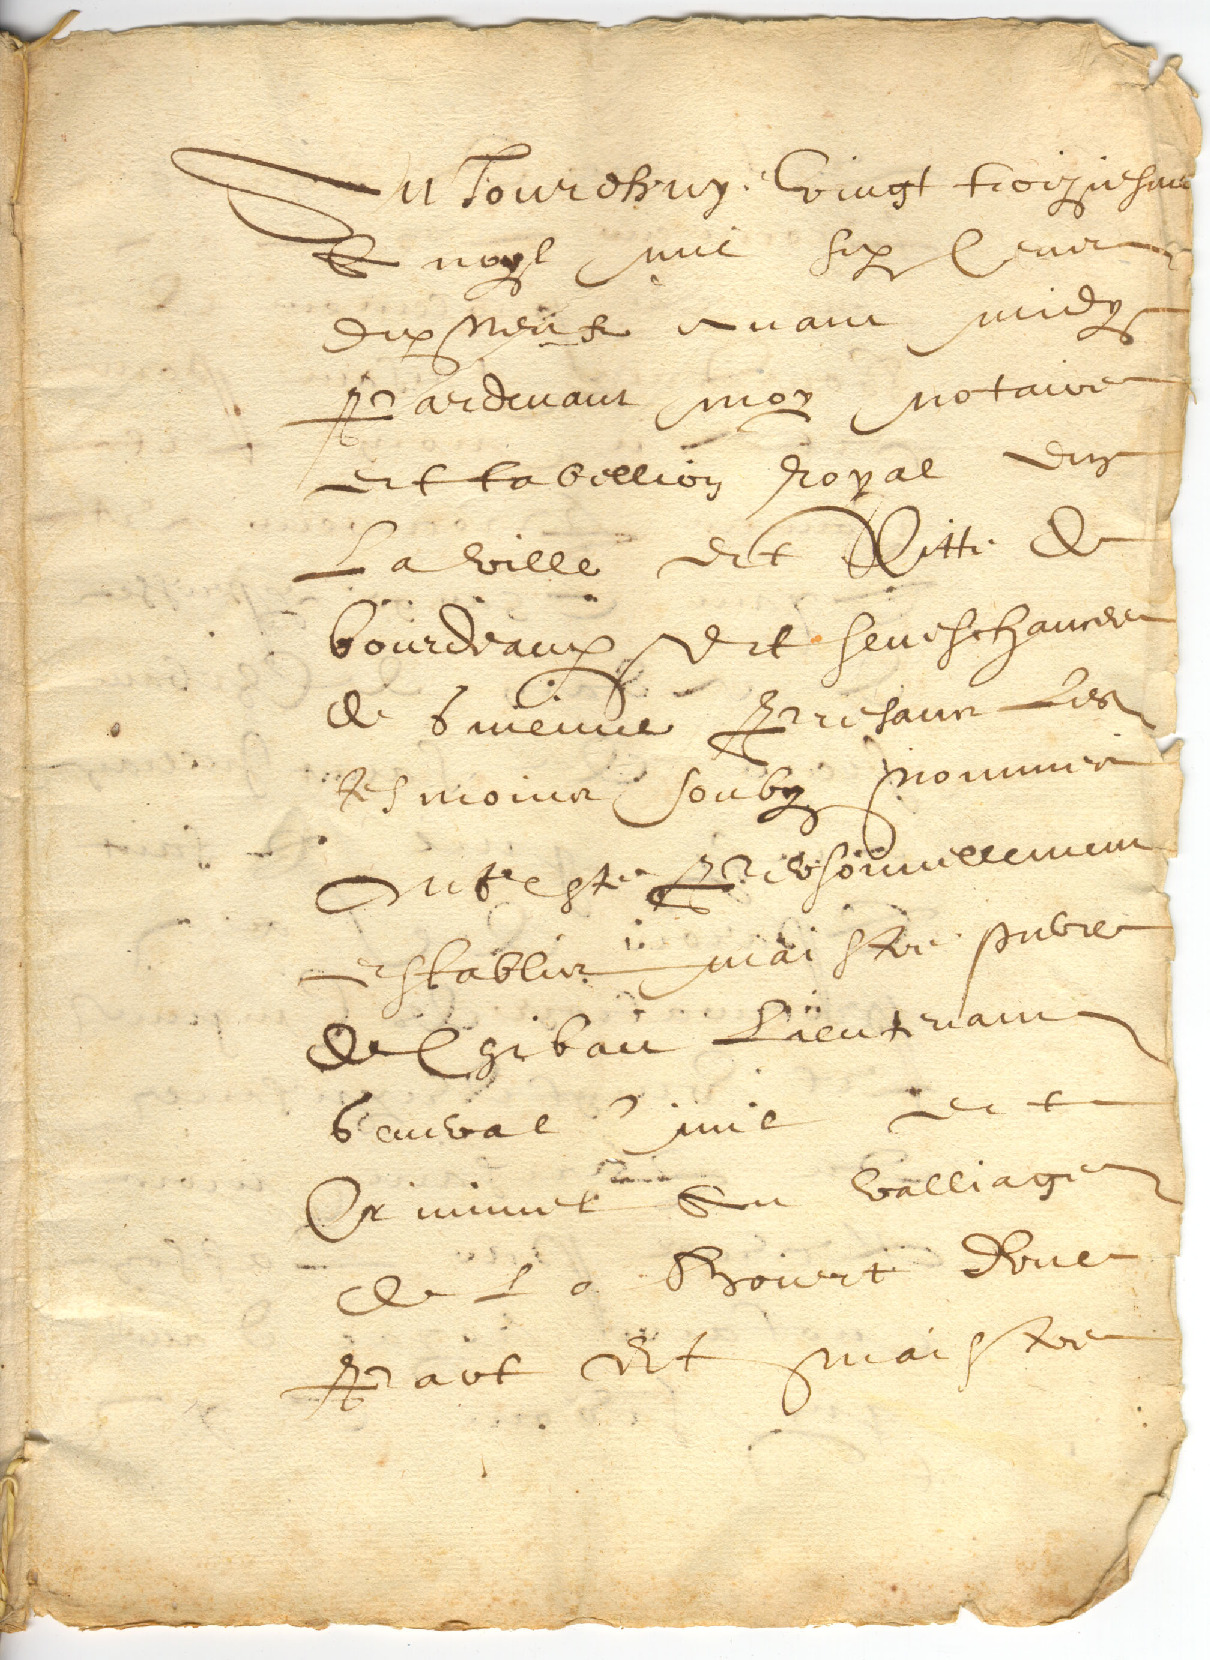 Au Jourdhuy vingt troiziesme
Avril mil six Cens
dix Neuf avant midy
Pardevant moy notaire
et tabellion Royal en
La ville et Citté de
bourdeaux et seneschaucee
de Guienne presans Les
tesmoins soubz nommes
Ont este Personnellement
establis maistre pierre
de Lieutenant
General Civil et
Criminel au balliage
de La d'une
Part et maistre